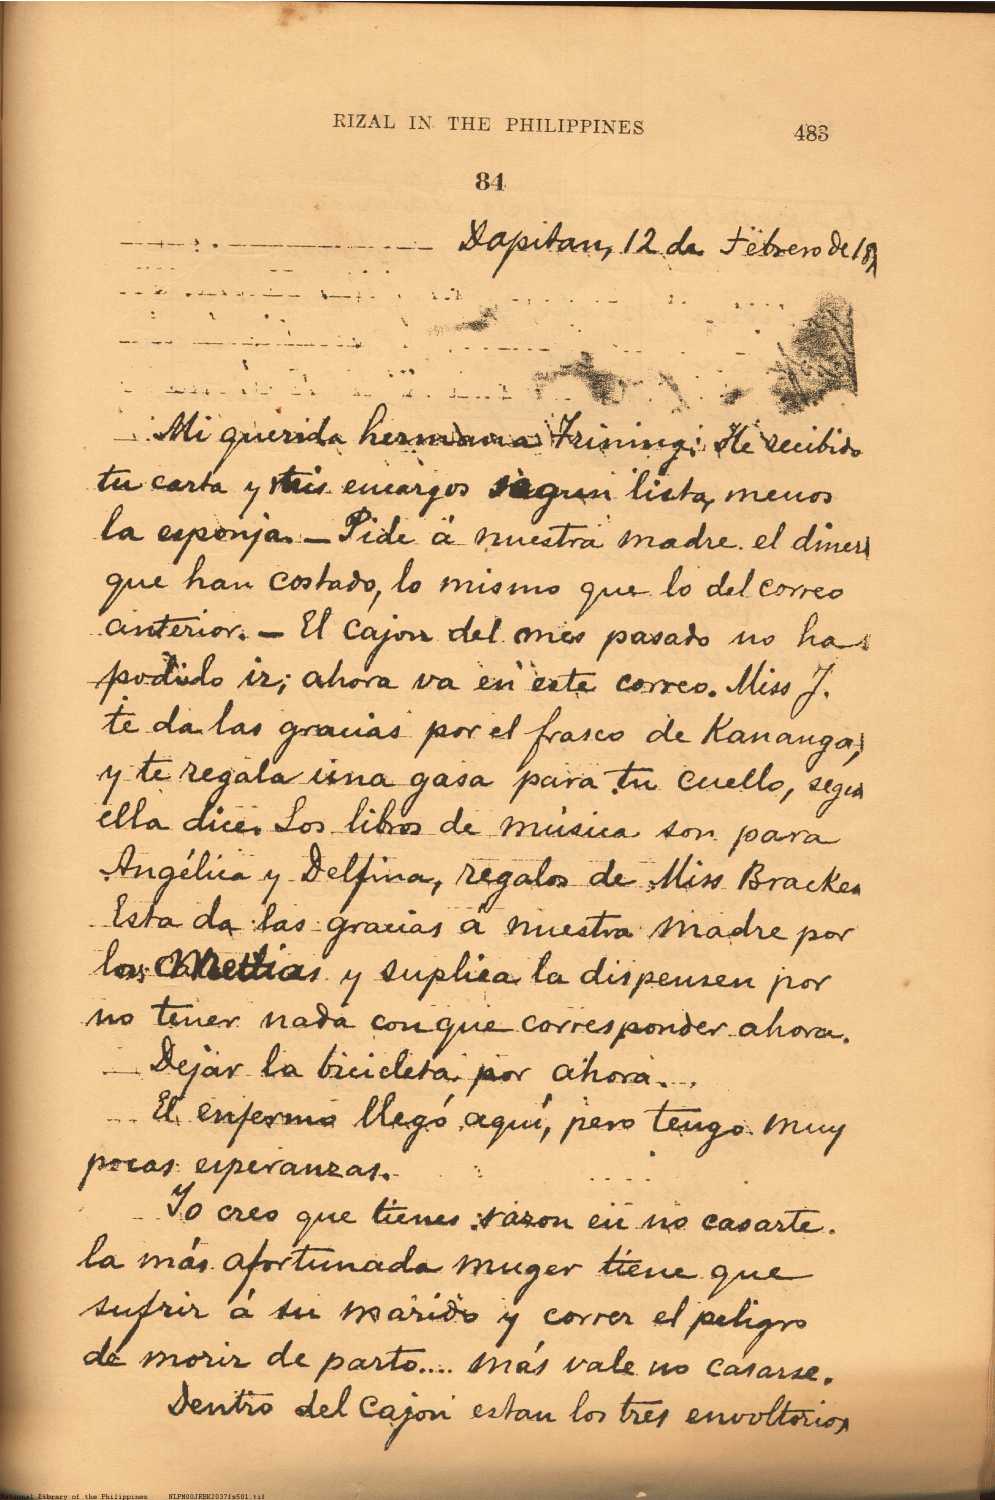 RIZAL IN THE PHILIPPINES
483
84
Dapitan, 12 de Febrero de 18
Mi querida hermana Trining: He recibido
tu carta y mis encargos segun lista, menos
la esponja. — Pide á nuestra madre el diner
que han costado, lo mismo que lo del correo
anterior. — El cajon del mes pasado no ha
podido ir; ahora va en este correo. Miss J.
te da las gracias por el frasco de Kananga,
y te regala una gasa para tu cuello, segun
ella dice. Los libros de música son para
Angélica y Delfina, regalos de Miss Bracken
Esta da las gracias á nuestra madre por
las y suplica la dispensen por
no tener nada con que corresponder ahora.
Dejar la bicicleta por ahora...
El enfermo llegó aquí, pero tengo muy
pocas esperanzas.
Yo creo que tienes razon en no casarte.
la más afortunada muger tiene que
sufrir á su marido y correr el peligro
de morir de parto.... más vale no casarse.
Dentro del cajon estan los tres envoltorios
National Library of the Philippines